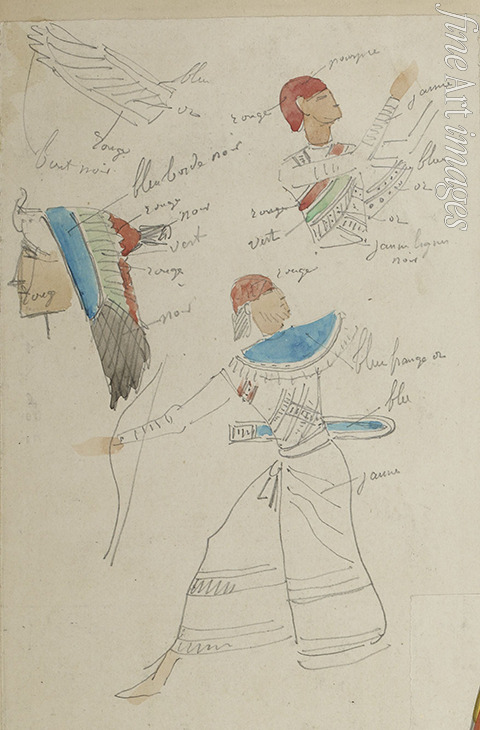 bleu
or
rouge
bout noir
bleu bordé noir
rouge
noir
vert
rouge
noir
roug
pourpre
rouge
jaune
bleu
or
rouge
or
vert
jaune lignes
noir
rouge
bleu frange or
bleu
jaune
fine Art images